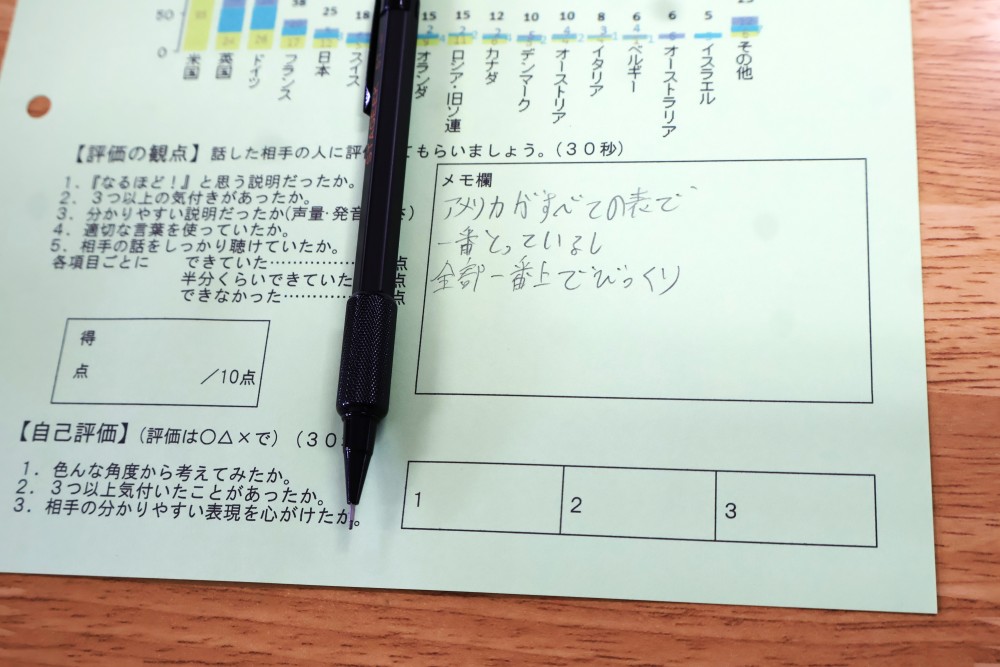 50
0
38 25 18 15 15 12 10 10 8 6 6 5
米国 英国 ドイツ フランス 日本 スイス オランダ ロシア・旧ソ連 カナダ デンマーク オーストリア イタリア ベルギー オーストラリア イスラエル その他
【評価の観点】話した相手の人に評価 てもらいましょう。(30秒)
1.『なるほど!』と思う説明だったか。
2.3つ以上の気付きがあったか。
3.分かりやすい説明だったか(声量・発音 さ)
4.適切な言葉を使っていたか。
5.相手の話をしっかり聴けていたか。
各項目ごとに できていた…………… 点
半分くらいできていた 点
できなかった………… 点
得
点 /10点
メモ欄
アメリカがすべての表で
一番とっているし
全部一番上でびっくり
【自己評価】(評価は○△×で)(30
1.色んな角度から考えてみたか。
2.3つ以上気付いたことがあったか。
3.相手の分かりやすい表現を心がけたか。
1 2 3